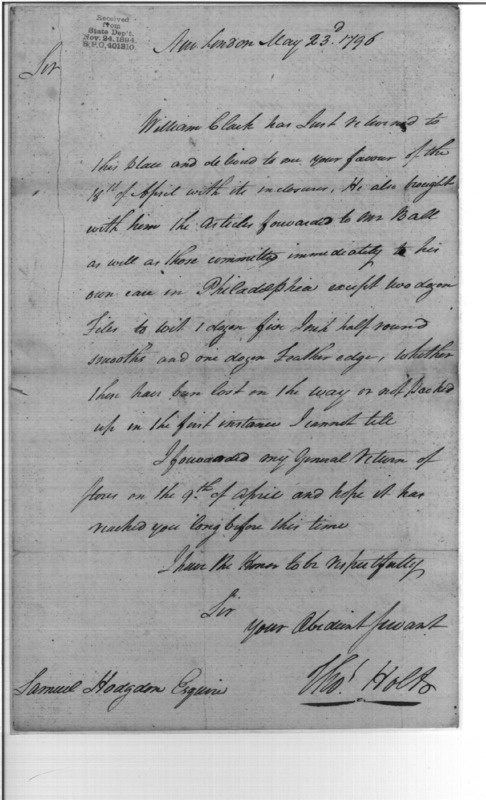 Received
from
State Dep't.
Nov. 24. 1894.
R.P.O. 401310.
New London May 23.d 1796
Sir
William Clark has Just returned to
this place and delivered to me your favour of the
18th of April with its inclosures, He also brought
with him the Articles forwarded to Mr Ball
as well as those committed immediately to his
own care in Philadelphia except two dozen
Files to wit 1 dozen five Inch half round
smooths and one dozen Feather edge, whether
these have been lost on the way or not Packed
up in the first instance I cannot tell
I forwarded my General Return of
stores on the 9.th of April and hope it has
reached you long before this time
I have the Honor to be respectfully
Sir
your Obedient Servant
Thos. Holt
Samuel Hodgdon Esquire